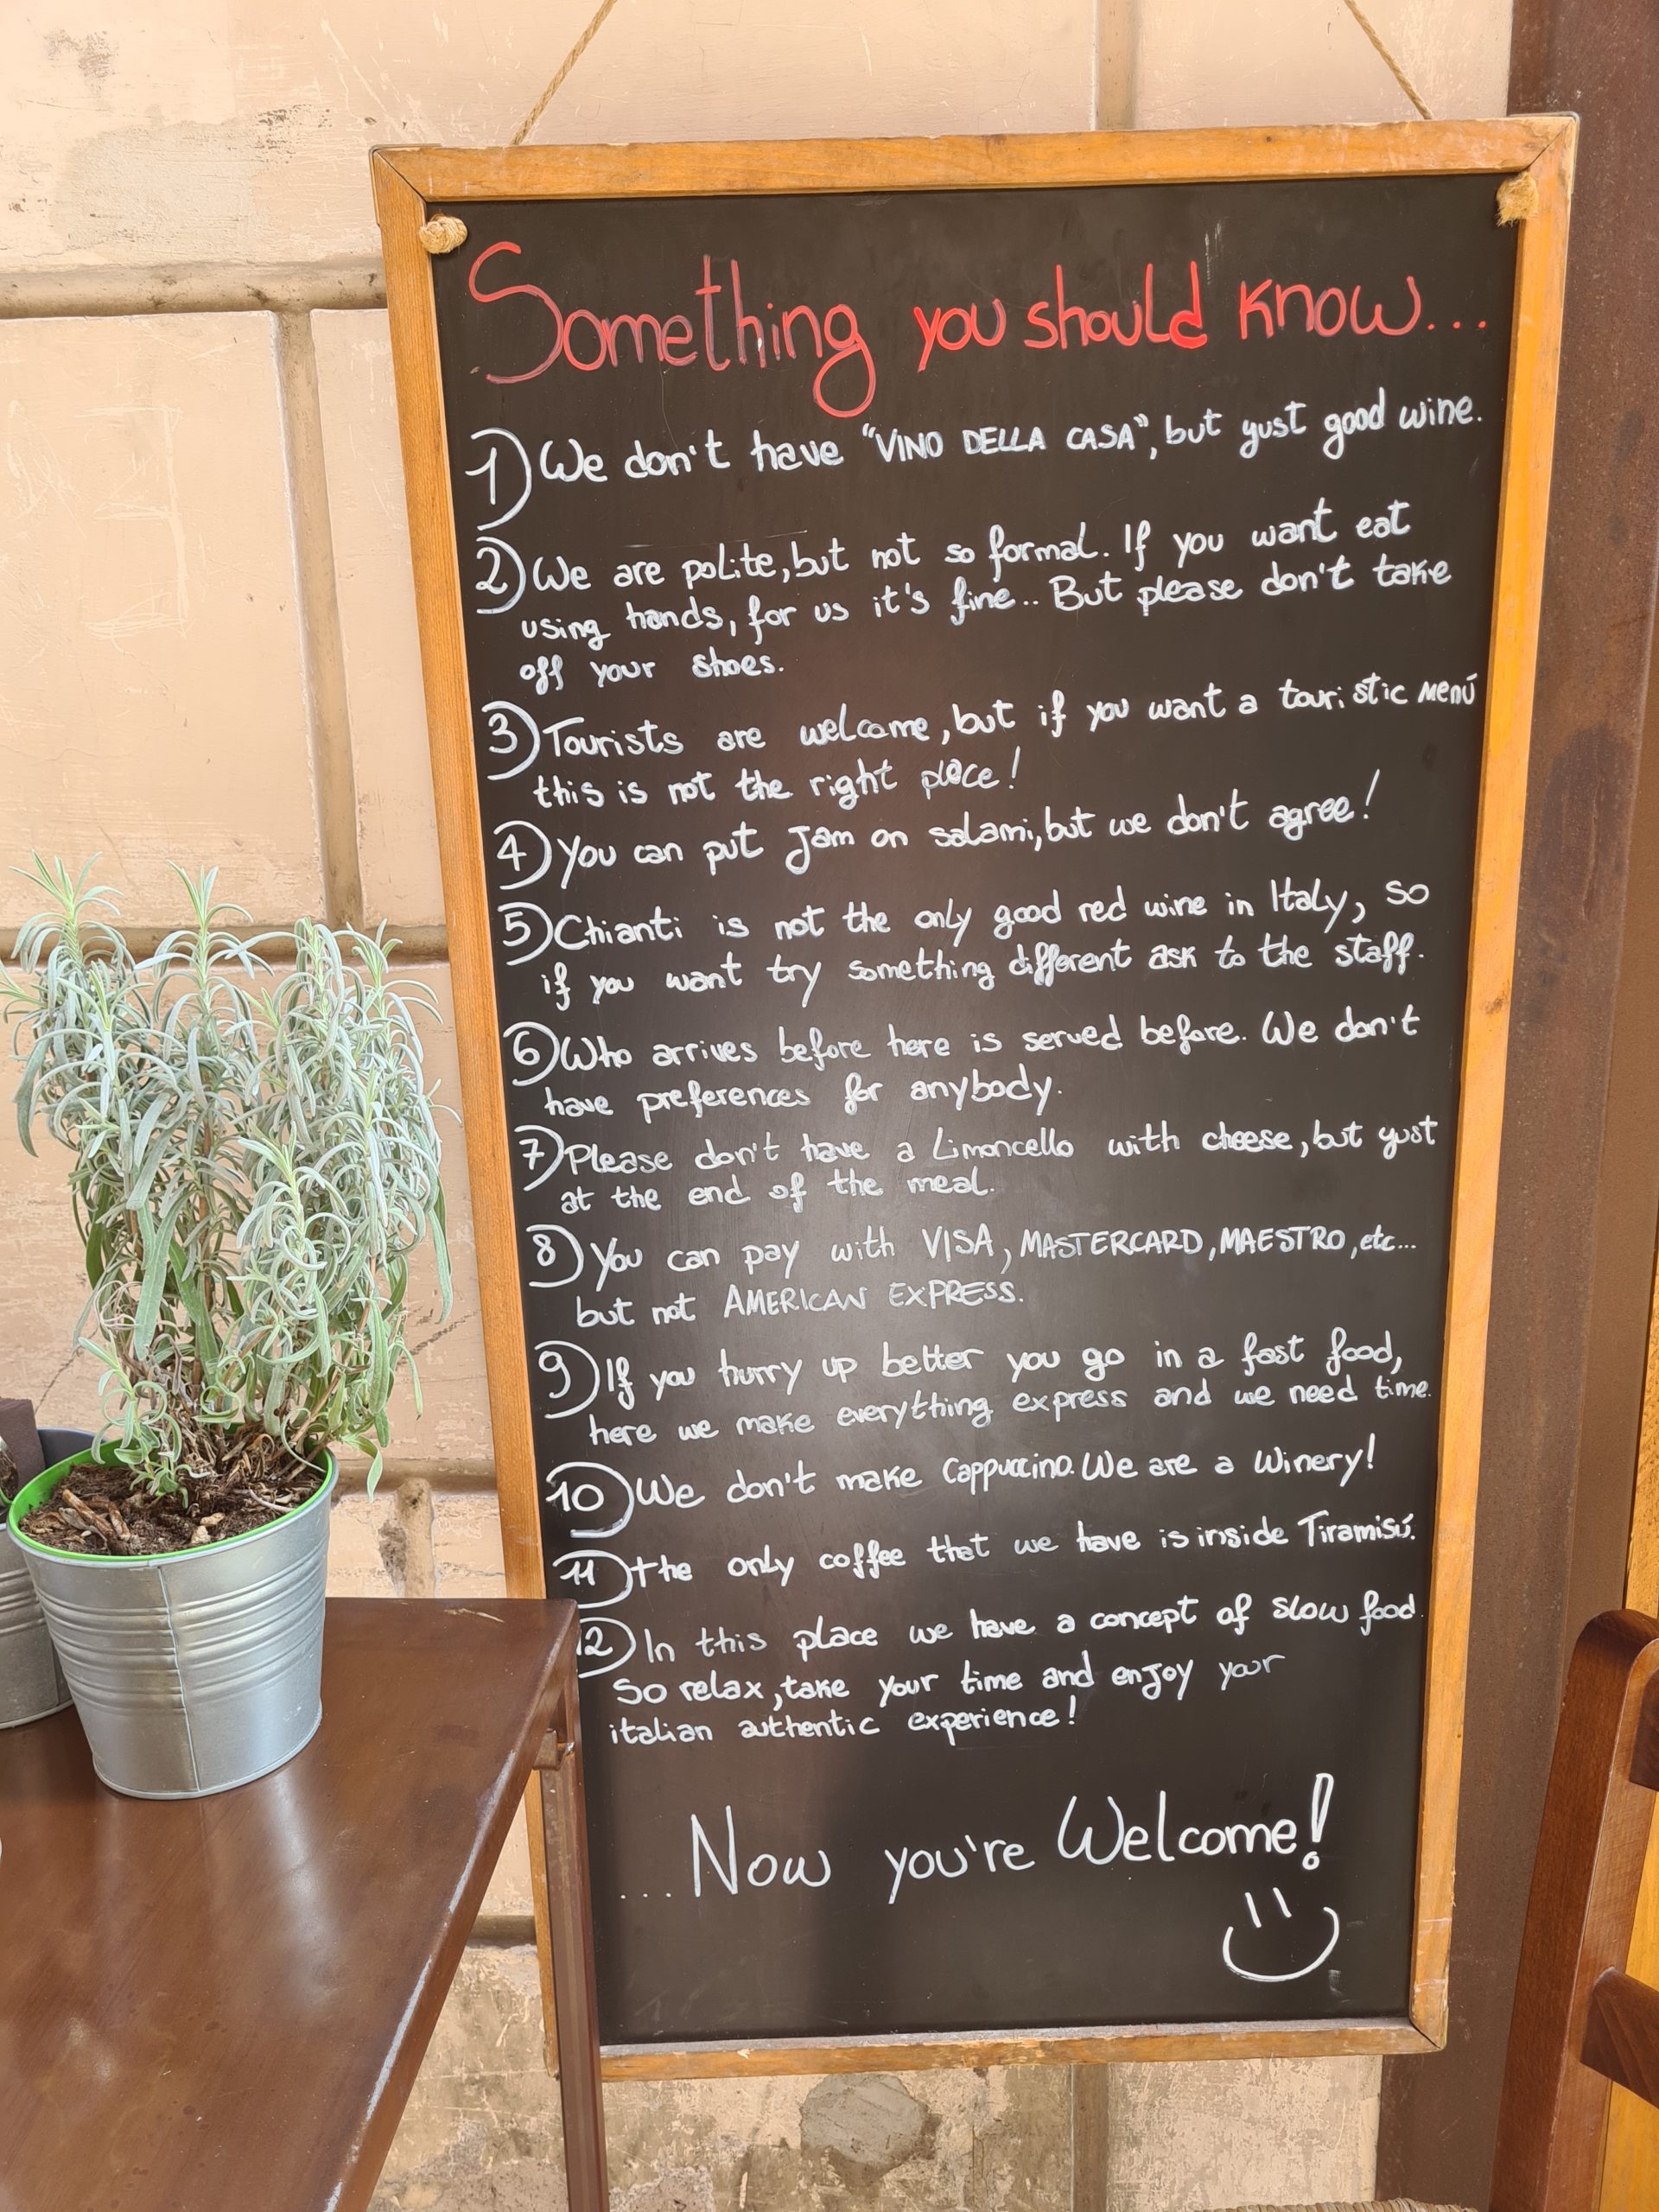 Something you should know...
1) We don't have "VINO DELLA CASA", but yust good wine.
2) We are polite, but not so formal. If you want eat
using hands, for us it's fine.. But please don't take
off your shoes.
3) Tourists are welcome, but if you want a touristic menú
this is not the right place!
4) You can put Jam on salami, but we don't agree!
5) Chianti is not the only good red wine in Italy, so
if you want try something different ask to the staff.
6) Who arrives before here is served before. We don't
have preferences for anybody.
7) Please don't have a Limoncello with cheese, but yust
at the end of the meal.
8) You can pay with VISA, MASTERCARD, MAESTRO, etc...
but not AMERICAN EXPRESS.
9) If you hurry up better you go in a fast food,
here we make everything express and we need time.
10) We don't make Cappuccino. We are a Winery!
11) the only coffee that we have is inside Tiramisú.
12) In this place we have a concept of slow food.
So relax, take your time and enjoy your
italian authentic experience!
...Now you're Welcome!